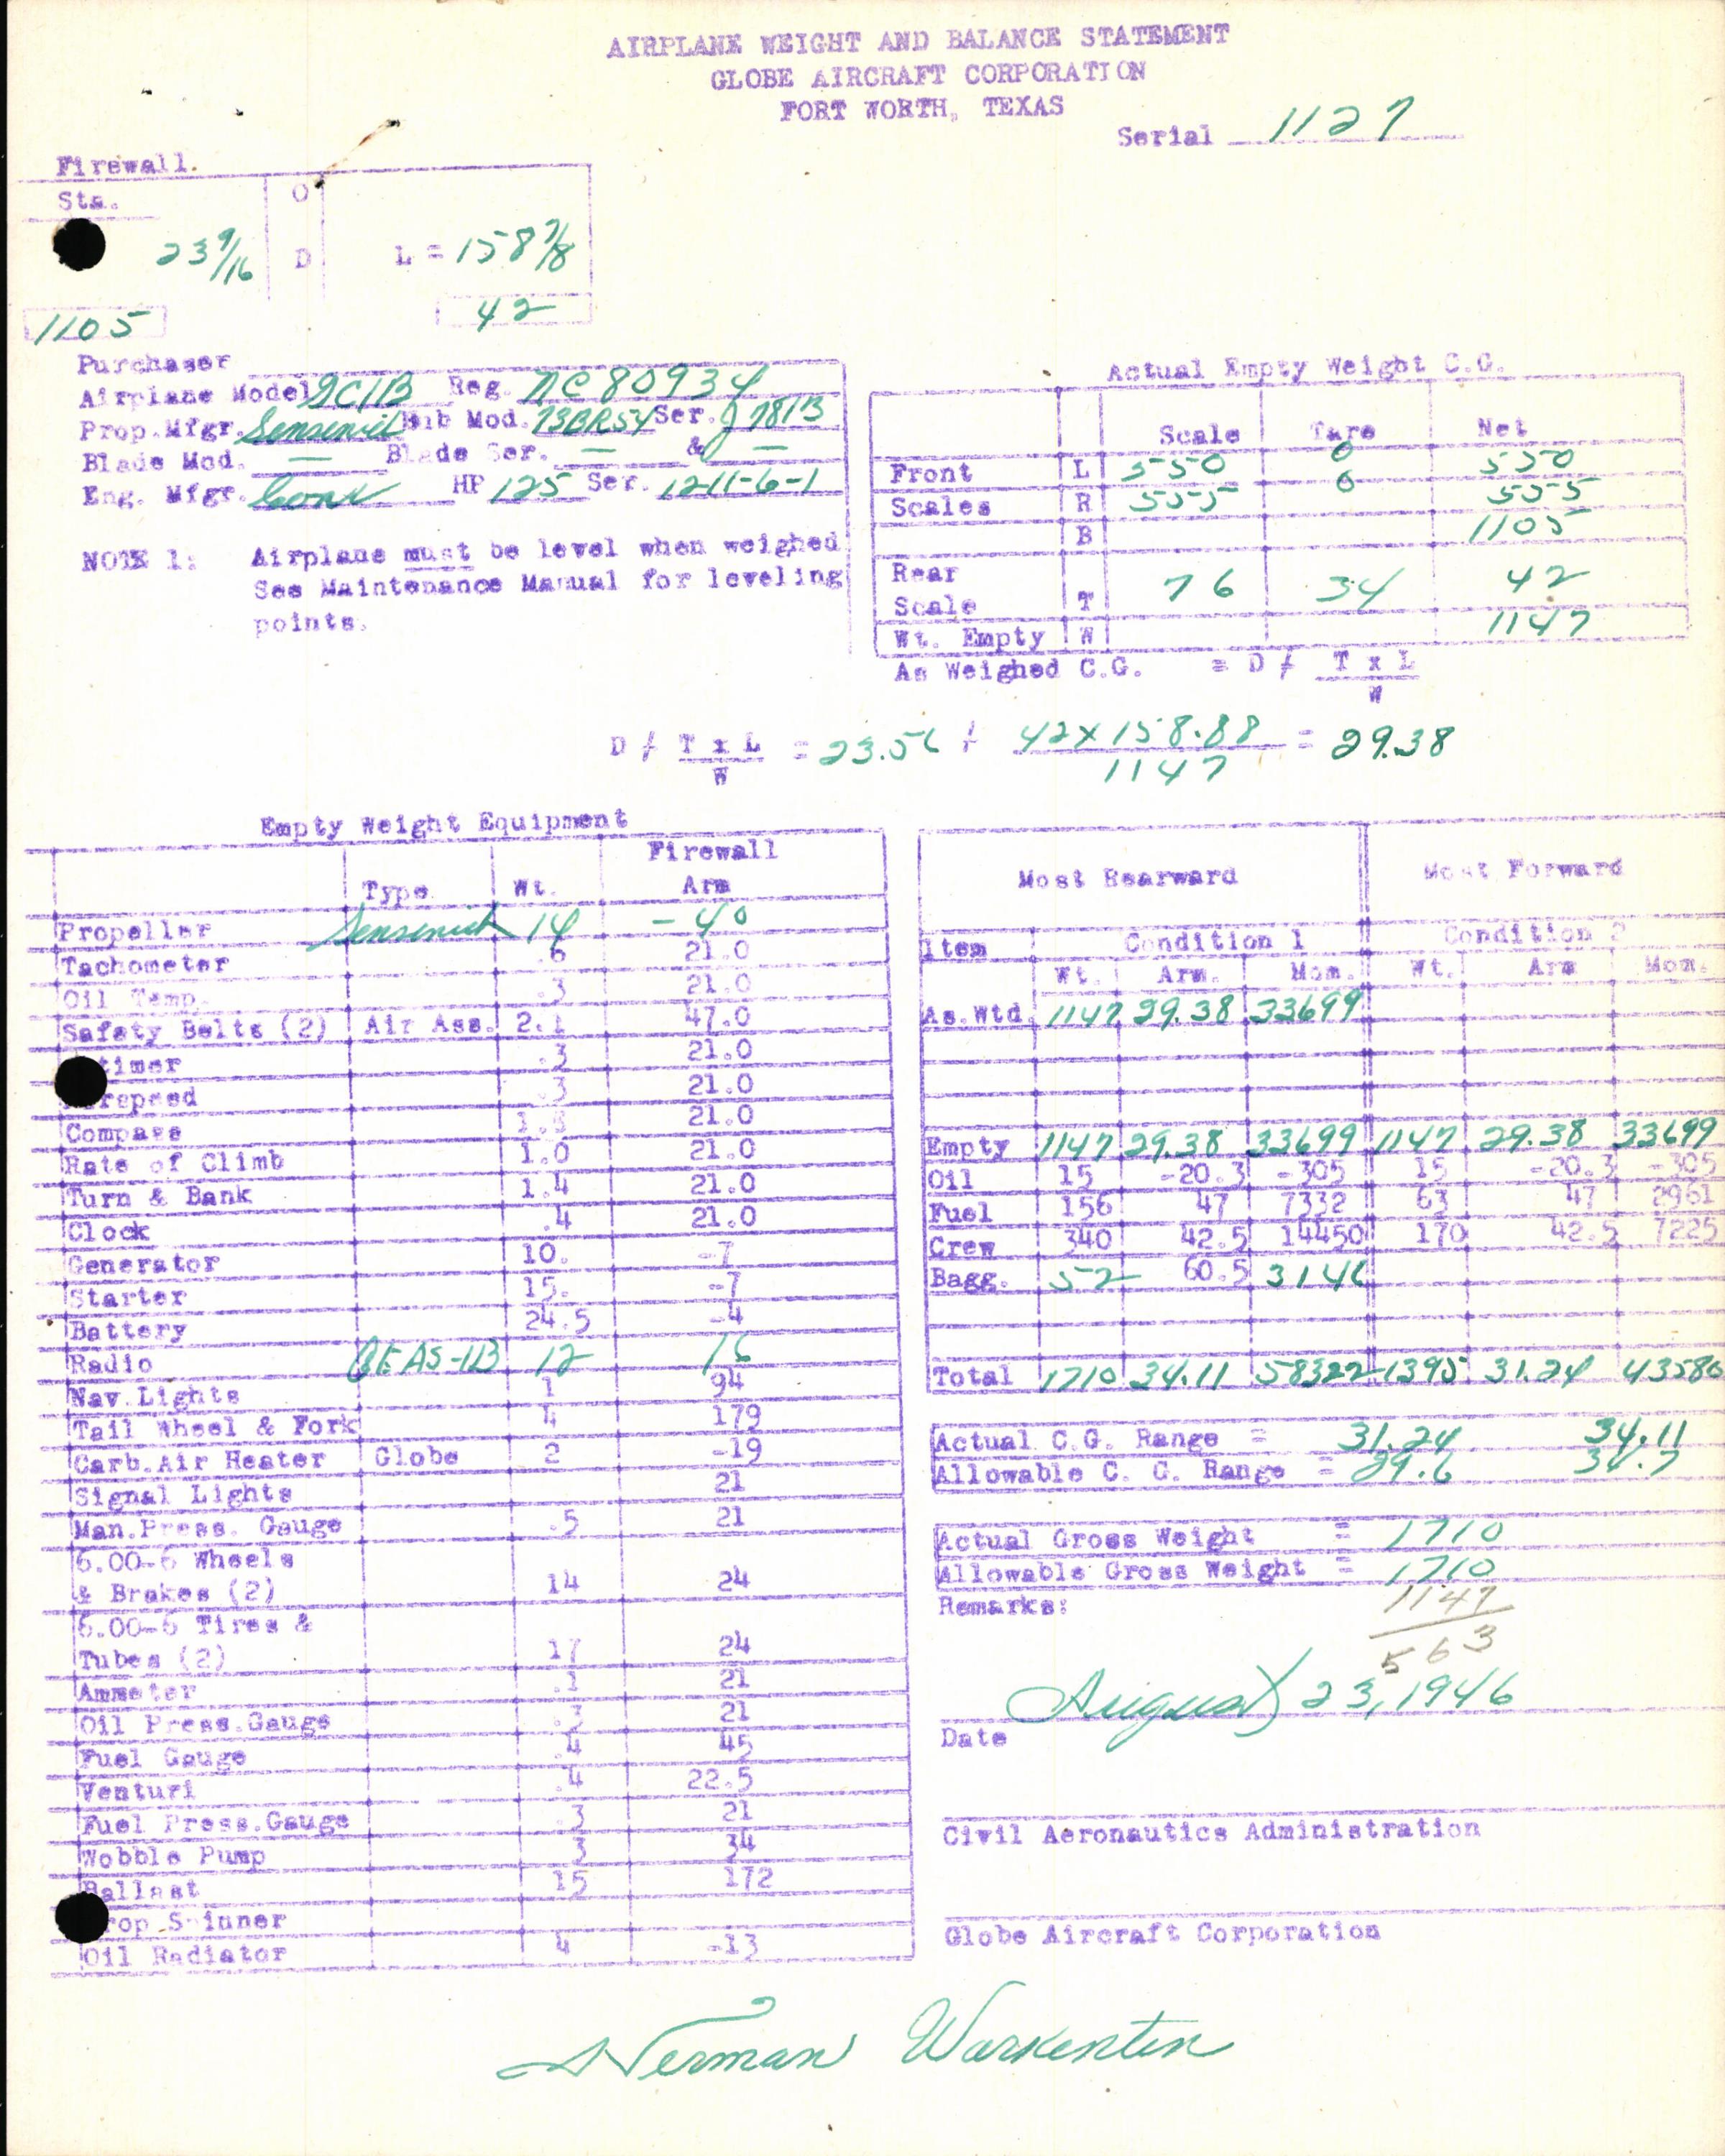 AIRPLANE WEIGHT AND BALANCE STATEMENT
GLOBE AIRCRAFT CORPORATION
FORT WORTH, TEXAS
Serial 1127
Firewall.
Sta. O
23 9/16 D L = 158 7/8
1105 42
Purchaser
Airplane Model GC1B Reg. NC 80934
Prop.Mfgr. Sensenich Hub Mod. 73BR54 Ser. J 7813
Blade Mod. — Blade Ser. — & —
Eng. Mfgr. Cont HP 125 Ser. 12-11-6-1
NOTE 1: Airplane must be level when weighed
See Maintenance Manual for leveling
points.
Actual Empty Weight C.G.
Scale Tare Net
Front L 550 0 550
Scales R 555 0 555
B 1105
Rear
Scale T 76 34 42
Wt. Empty W 1147
As Weighed C.G. = D ≠ T x L
W
D ≠ T x L = 23.56 + 42 x 158.88 = 29.38
W 1147
Empty Weight Equipment
Type Wt. Firewall Arm
Propeller Sensenich 14 -40
Tachometer .6 21.0
Oil Temp. .3 21.0
Safety Belts (2) Air Ass. 2.1 47.0
timer .3 21.0
speed .3 21.0
Compass 21.0
Rate of Climb 1.0 21.0
Turn & Bank 1.4 21.0
Clock .4 21.0
Generator 10. -7
Starter 15. -7
Battery 24.5 -4
Radio GE AS-1B 12 16
Nav.Lights 1 94
Tail Wheel & Fork 4 179
Carb.Air Heater Globe 2 -19
Signal Lights 21
Man.Press. Gauge .5 21
6.00-6 Wheels
& Brakes (2) 14 24
6.00-6 Tires &
Tubes (2) 17 24
Ammeter .1 21
Oil Press.Gauge .3 21
Fuel Gauge .4 45
Venturi .4 22.5
Fuel Press.Gauge .3 21
Wobble Pump 3 34
Ballast 15 172
rop Spinner
Oil Radiator 4 -13
Most Rearward Most Forward
Item Condition 1 Condition 2
Wt. Arm. Mom. Wt. Arm Mom.
As.Wtd. 1147 29.38 33699
Empty 1147 29.38 33699 1147 29.38 33699
Oil 15 -20.3 -305 15 -20.3 -305
Fuel 156 47 7332 63 47 2961
Crew 340 42.5 14450 170 42.5 7225
Bagg. 52 60.5 3146
Total 1710 34.11 58322 1395 31.24 43580
Actual C.G. Range = 31.24 34.11
Allowable C. G. Range = 29.6
Actual Gross Weight = 1710
Allowable Gross Weight = 1710
Remarks: 1147
563
August 23, 1946
Date
Civil Aeronautics Administration
Globe Aircraft Corporation
Herman Warkentin